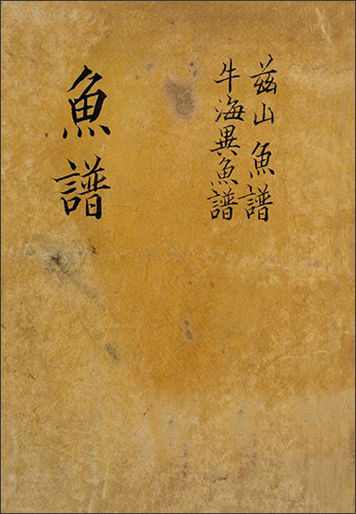 玆山魚譜
牛海異魚譜
魚譜